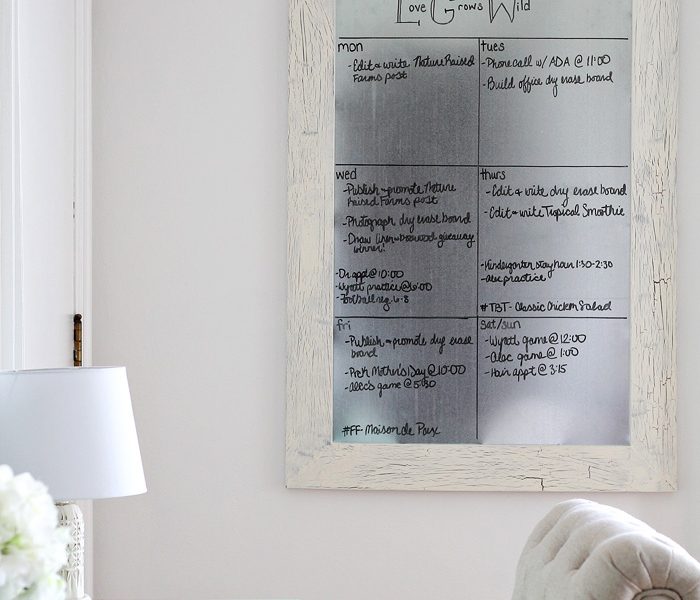 Love Grows Wild
mon
- Edit & write Nature Raised
Farms post
tues
- Phone call w/ ADA @ 11:00
- Build office dry erase board
wed
- Publish & promote Nature
Raised Farms post
- Photograph dry erase board
- Draw giveaway
winner!
- Dr appt @ 10:00
- Wyatt practice @ 6:00
- Football reg 6-8
thurs
- Edit & write dry erase board
- Edit & write Tropical Smoothie
- Kindergarten stay hour 1:30-2:30
- alec practice
#TBT - Classic Chicken Salad
fri
- Publish & promote dry erase
board
- PreK Mother's Day @ 10:00
- alec's game @ 5:30
#FF - Maison de Pax
sat/sun
- Wyatt game @ 12:00
- Alec game @ 1:00
- Hair appt @ 3:15